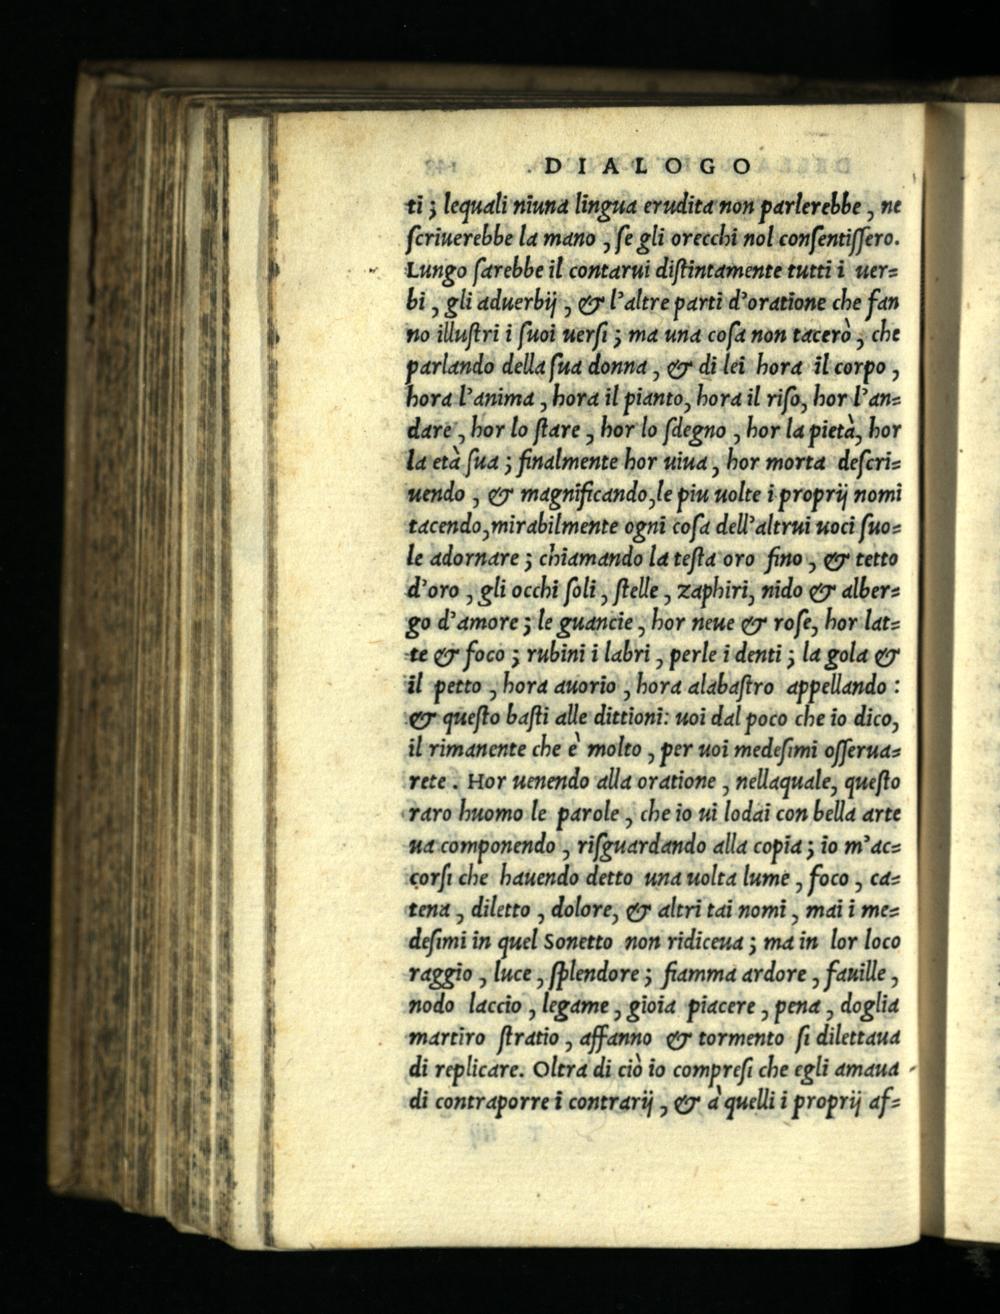 DIALOGO
ti ; lequali niuna lingua erudita non parlerebbe , ne
ſcriuerebbe la mano , ſe gli orecchi nol conſentiſſero.
Lungo ſarebbe il contarui diſtintamente tutti i uer=
bi , gli aduerbij , & l'altre parti d'oratione che fan
no illuſtri i ſuoi uerſi ; ma una coſa non tacerò , che
parlando della ſua donna , & di lei hora il corpo ,
hora l'anima , hora il pianto, hora il riſo, hor l'an=
dare , hor lo ſtare , hor lo ſdegno , hor la pietà, hor
la età ſua ; finalmente hor uiua , hor morta deſcri=
uendo , & magnificando,le piu uolte i proprij nomi
tacendo,mirabilmente ogni coſa dell'altrui uoci ſuo=
le adornare ; chiamando la teſta oro fino , & tetto
d'oro , gli occhi ſoli , ſtelle , zaphiri, nido & alber=
go d'amore ; le guancie , hor neue & roſe, hor lat=
te & foco ; rubini i labri , perle i denti ; la gola &
il petto , hora auorio , hora alabaſtro appellando :
& queſto baſti alle dittioni: uoi dal poco che io dico,
il rimanente che è molto , per uoi medeſimi oſſerua=
rete . Hor uenendo alla oratione , nellaquale, queſto
raro huomo le parole , che io ui lodai con bella arte
ua componendo , riſguardando alla copia ; io m'ac=
corſi che hauendo detto una uolta lume , foco , ca=
tena , diletto , dolore, & altri tai nomi , mai i me=
deſimi in quel Sonetto non ridiceua ; ma in lor loco
raggio , luce , ſplendore ; fiamma ardore , fauille ,
nodo laccio , legame , gioia piacere , pena , doglia
martiro ſtratio , affanno & tormento ſi dilettaua
di replicare. Oltra di ciò io compreſi che egli amaua
di contraporre i contrarij , & à quelli i proprij af=